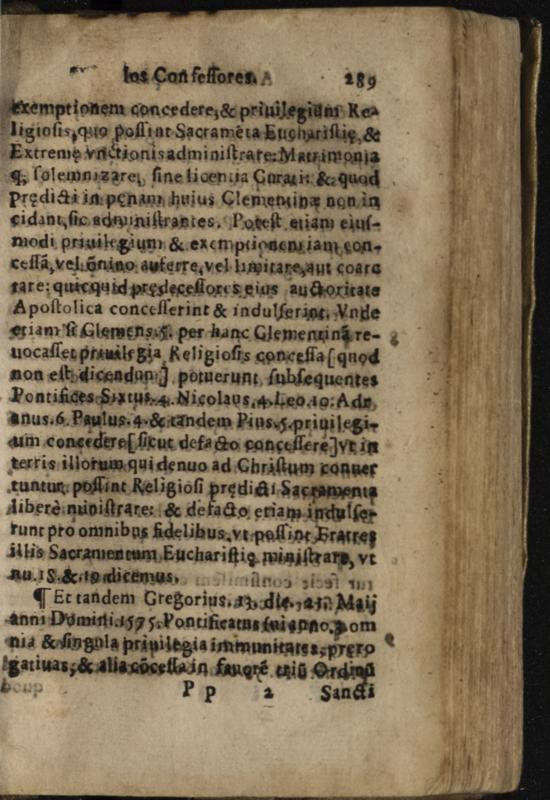 los Confessores. 289
exemptionem concedere,& priuilegium Re-
ligiosis,quo possint Sacramẽta Eucharistię,&
Extremę vnctionis administrare: Matrimonia
q; solemnizare, sine licentia Curati: & quod
prędicti in pęnam huius Clementinæ non in
cidant, sic administrantes. Potest etiam eius-
modi priuilegium & exemptionem iam con-
cessã, vel õnino auferre, vel limitare, aut coarc
tare: quicquid prędecessores eius auctoritate
Apostolica concesserint & indulserint. Vnde
etiam si Clemens.5. per hanc Clementinã re-
uocasset priuilegia Religiosis concessa [quod
non est dicendum] potuerunt subsequentes
Pontifices Sixtus.4. Nicolaus.4. Leo.10. Adri
anus.6. Paulus.4. & tandem Pius.5. priuilegi-
um concedere [sicut defacto concessere] vt in
terris illorum qui denuo ad Christum conuer
tuntur, possint Religiosi prędicti Sacramenta
liberè ministrare: & defacto etiam indulse-
runt pro omnibus fidelibus, vt possint Fratres
illis Sacramentum Eucharistię ministrare, vt
nu.18.& 19. dicemus.
¶ Et tandem Gregorius.13. die, Maij
anni Domini.1575. Pontificatus sui anno.3. om
nia & singula priuilegia immunitates, prero
gatiuas, & alia cõcessa in fauorẽ triũ Ordinũ
P p 2 Sancti